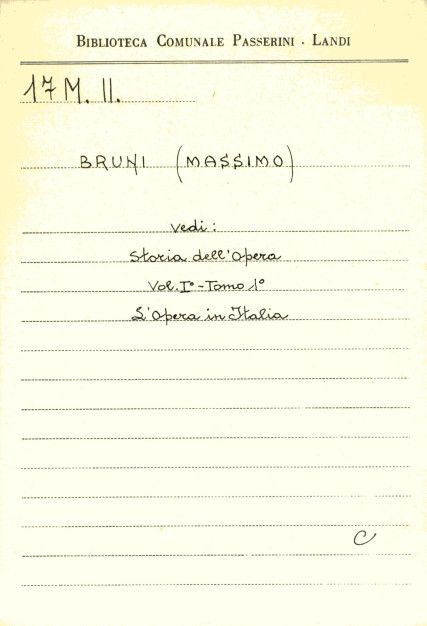 BIBLIOTECA COMUNALE PASSERINI - LANDI
17 M. II.
BRUNI (MASSIMO)
vedi:
Storia dell'Opera
Vol. I° - Tomo 1°
L'Opera in Italia
C